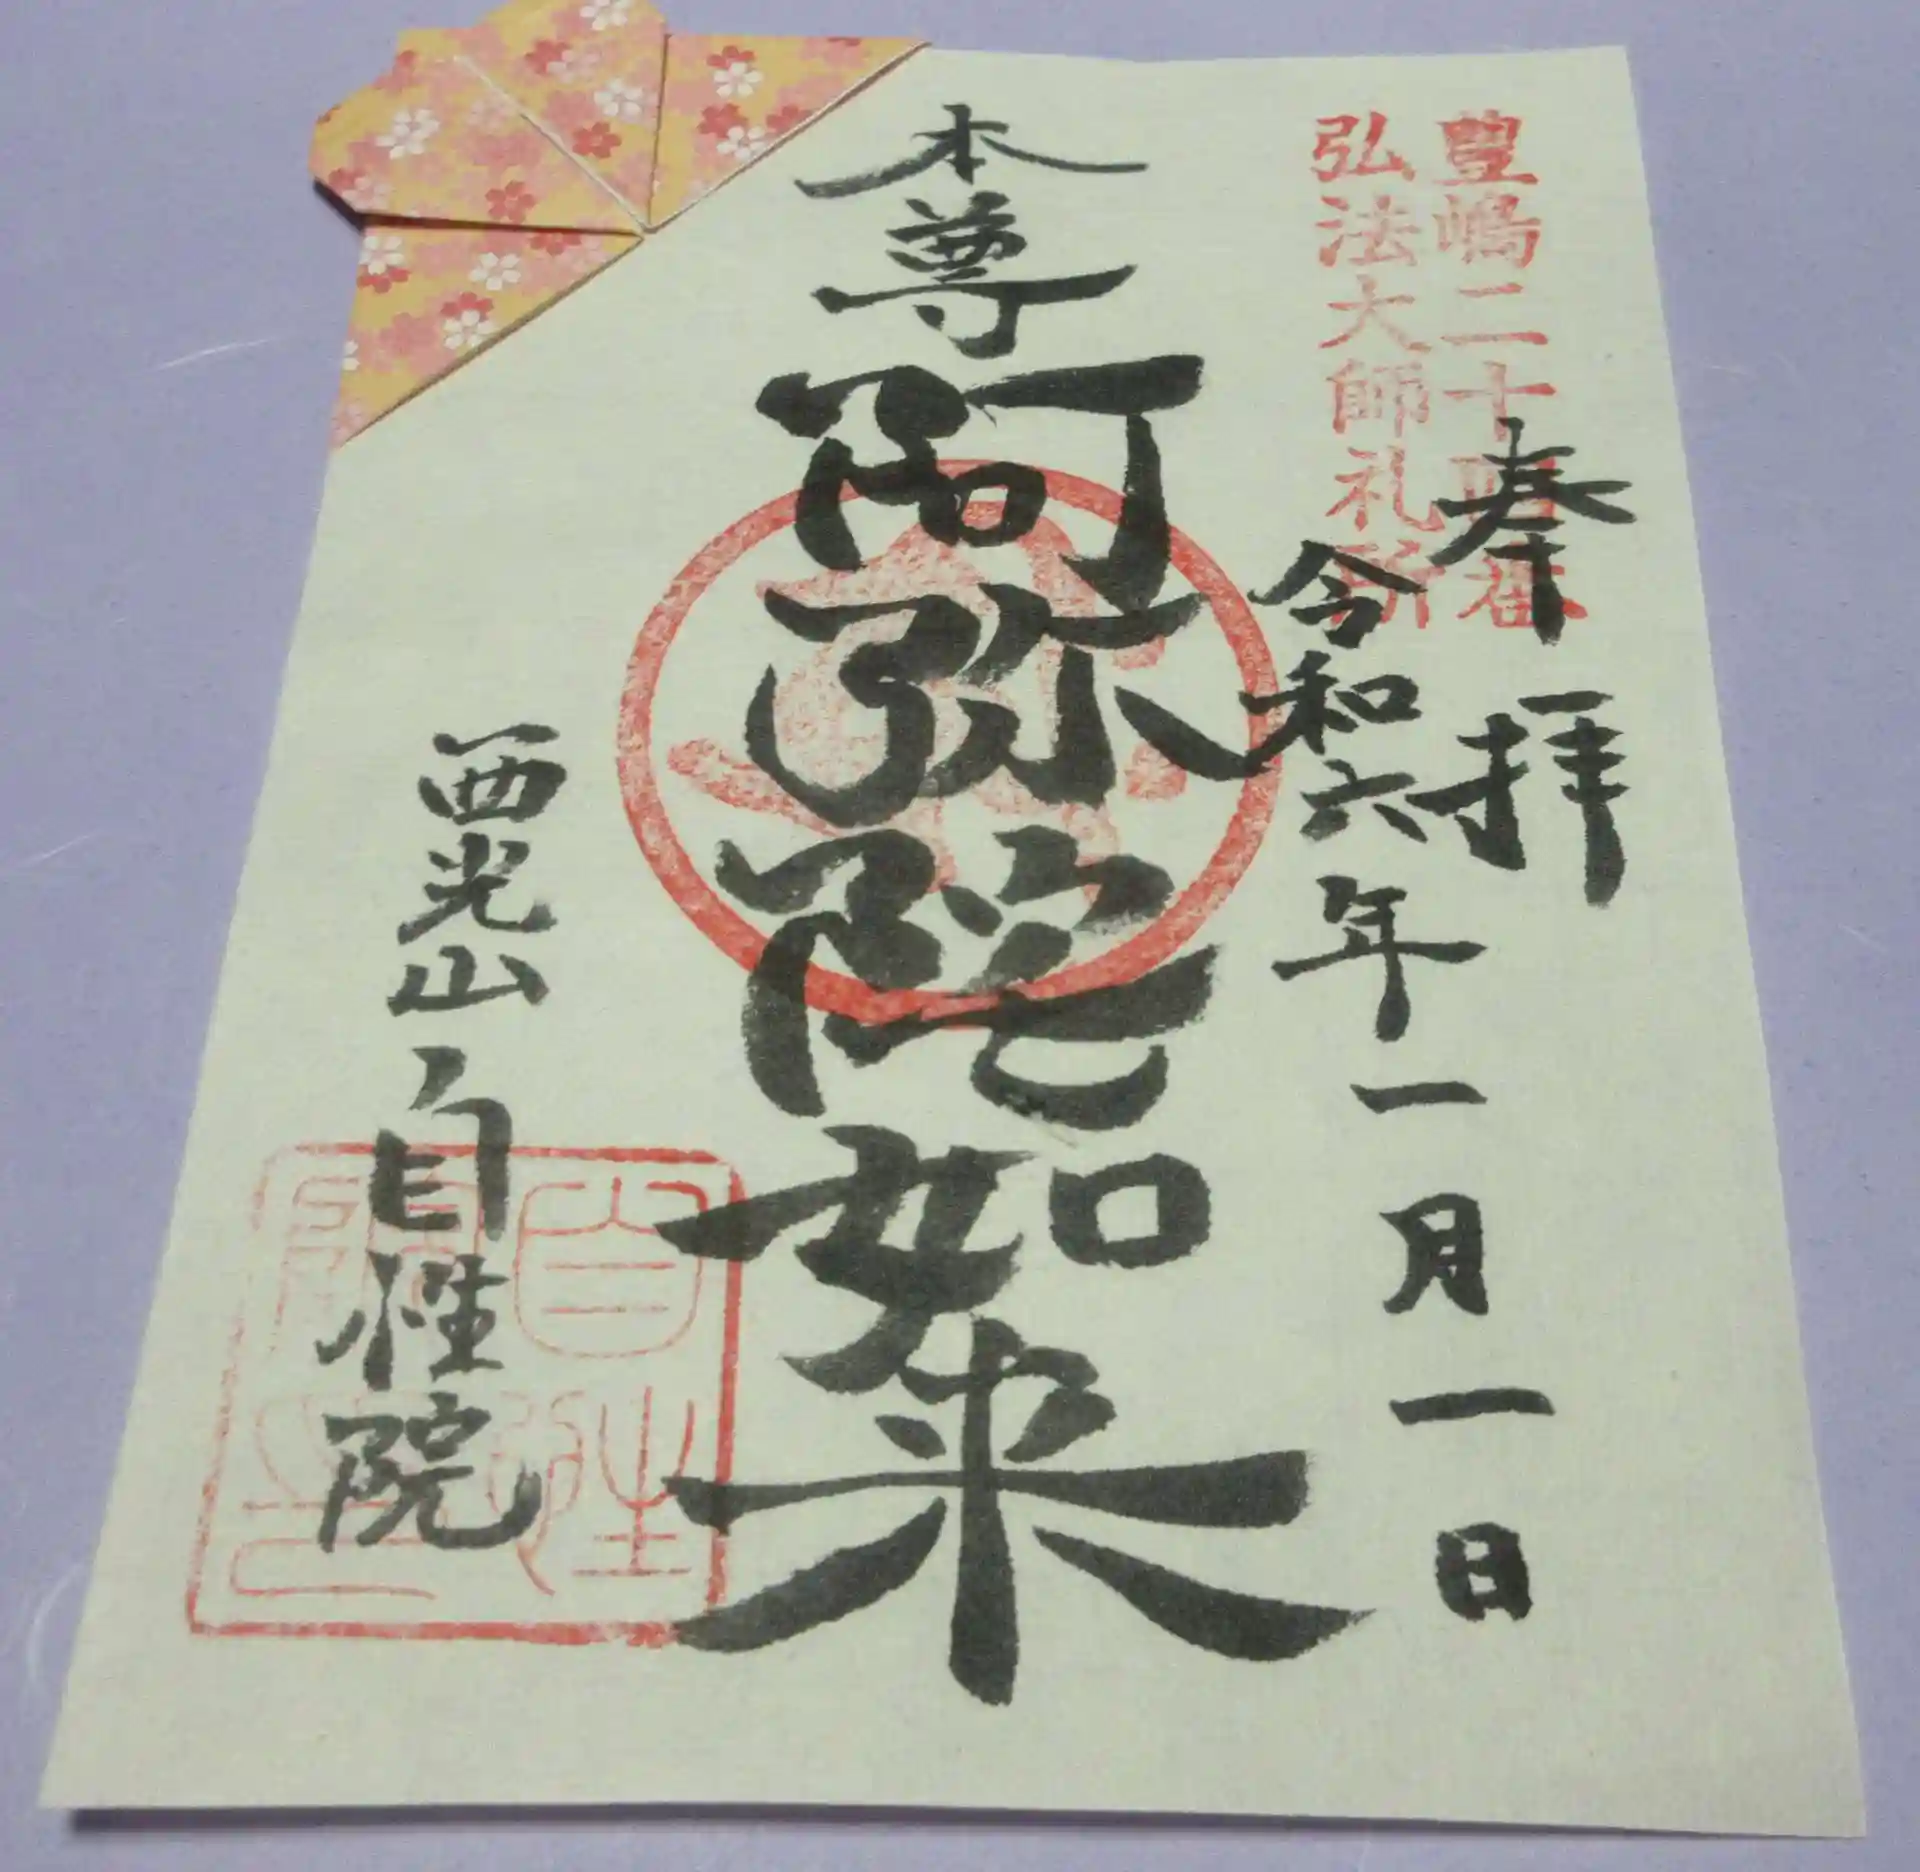 豊嶋二十四番
弘法大師礼所
奉拝
令和六年一月一日
本尊
阿弥陀如来
西光山 自性院
自性院